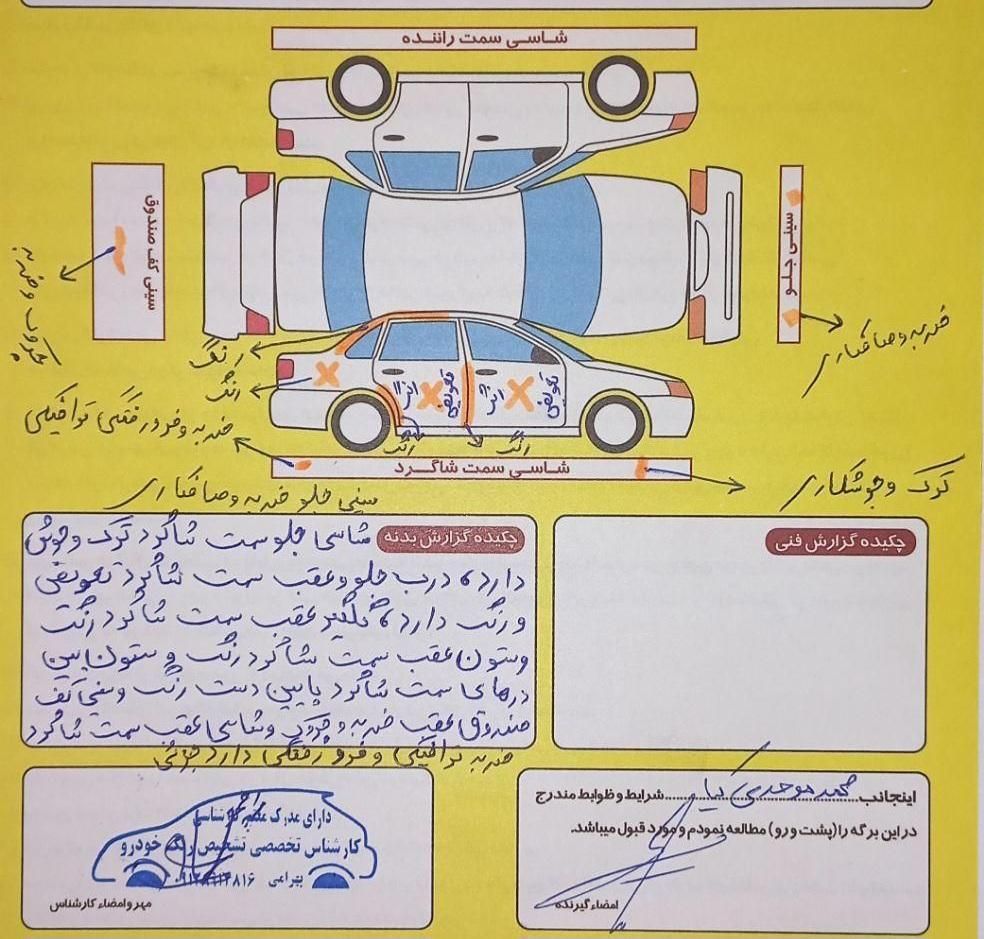 شاسی سمت راننده
سینی کف صندوق
چروک و ضربه
سینی جلو
ضربه و صافکاری
رنگ
رنگ
ضربه و فرورفتگی ترافیکی
تعویض
تعویض
رنگ
رنگ
شاسی سمت شاگرد
ترک و جوشکاری
سینی جلو ضربه و صافکاری
چکیده گزارش فنی
چکیده گزارش بدنه
شاسی جلو سمت شاگرد ترک و جوش
دارد، درب جلو و عقب سمت شاگرد تعویض
و رنگ دارد، گلگیر عقب سمت شاگرد رنگ
و ستون عقب سمت شاگرد رنگ و ستون بین
درهای سمت شاگرد پایین دست رنگ و سینی کف
صندوق عقب ضربه و چروک و شاسی عقب سمت شاگرد
ضربه ترافیکی و فرورفتگی دارد جزئی
اینجانب محمد موحدی کیا شرایط و ظوابط مندرج
در این برگه را (پشت و رو) مطالعه نمودم و مورد قبول میباشد.
امضاء گیرنده
دارای مدرک معتبر کارشناسی
کارشناس تخصصی تشخیص رنگ خودرو
بهرامی
مهر و امضاء کارشناس